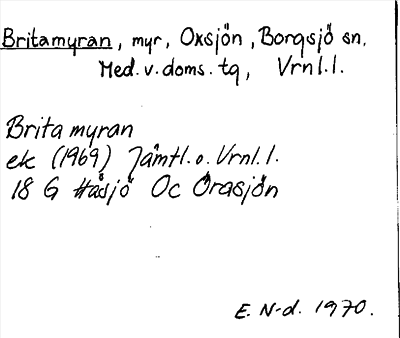 Britamyran, myr, Oxsjön, Borgsjö sn,
Med. v. doms. tg, Vrnl. l.
Brita myran
ek (1969) Jämtl. o. Vrnl. l.
18 G Håsjö Oc Örasjön
E. N-d. 1970.